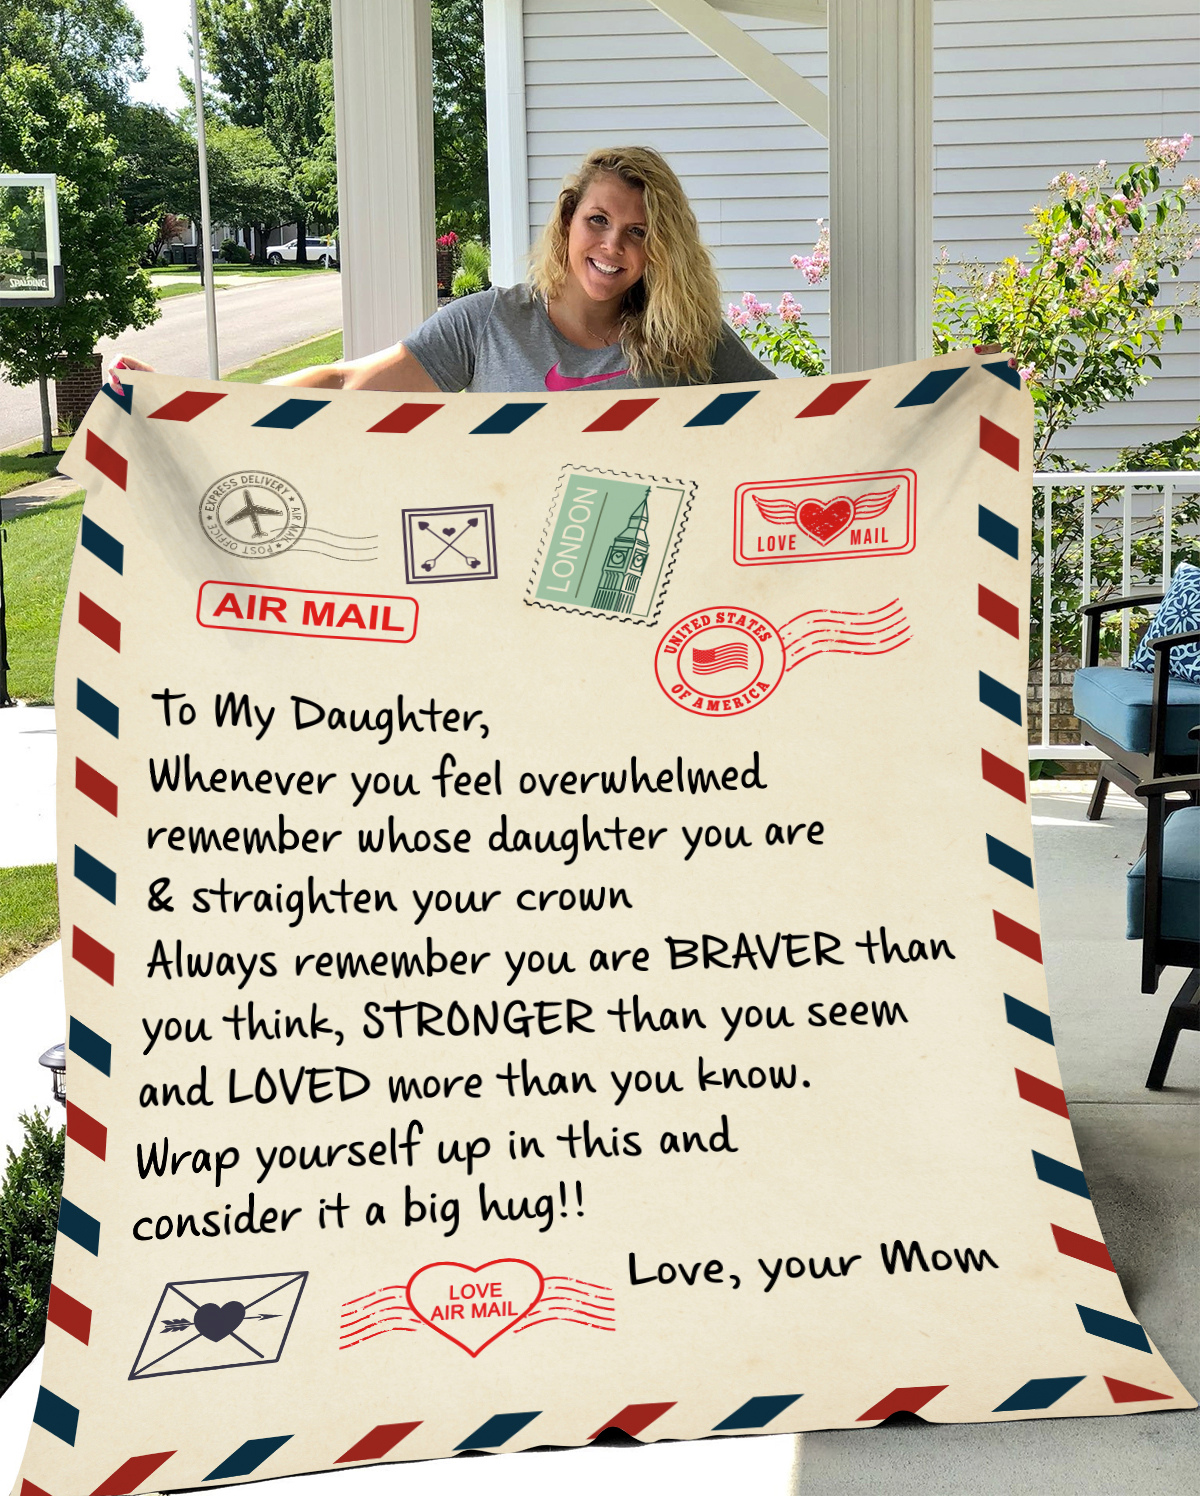 SPALDING
EXPRESS DELIVERY ★ AIR MAIL ★ POST OFFICE ★
LONDON
LOVE MAIL
AIR MAIL
UNITED STATES
OF AMERICA
To My Daughter,
Whenever you feel overwhelmed
remember whose daughter you are
& straighten your crown
Always remember you are BRAVER than
you think, STRONGER than you seem
and LOVED more than you know.
Wrap yourself up in this and
consider it a big hug!!
Love, your Mom
LOVE
AIR MAIL